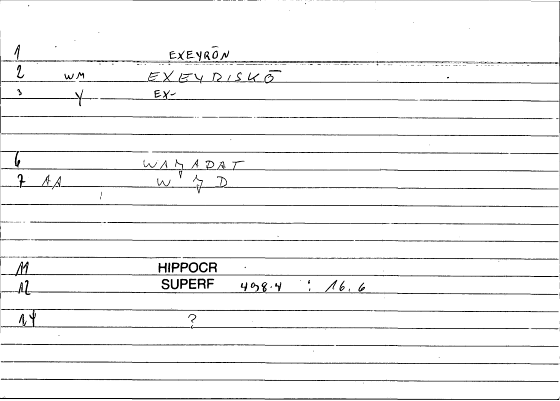 1 EXEYRŌN
2 WM EXEYDISKŌ
3 Y EX-
6 WAɣADAT
7 AA W ɣ D
11 HIPPOCR
12 SUPERF 498.4 : 16.6
14 ?